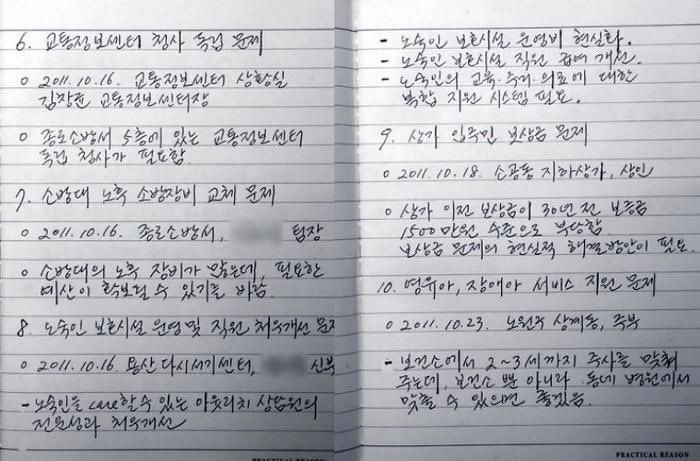 6. 교통정보센터 청사 독립 문제
o 2011.10.16. 교통정보센터 상황실
김장훈 교통정보센터장
o 종로소방서 5층에 있는 교통정보센터
독립 청사가 필요함.
7. 소방대 노후 소방장비 교체 문제
o 2011.10.16. 종로소방서, 팀장
o 소방대의 노후 장비가 많는데, 필요한
예산이 확보될 수 있기를 바람.
8. 노숙인 보호시설 운영 및 직원 처우개선 문제
o 2011.10.16. 용산 다시서기센터, 신부
- 노숙인을 care할 수 있는 아웃리치 상담원의
전문성과 처우개선
- 노숙인 보호시설 운영비 현실화.
- 노숙인 보호시설 직원 급여 개선.
- 노숙인의 교육·주거·의료에 대한
복합 지원 시스템 필요.
9. 상가 입주민 보상금 문제
o 2011.10.18. 소공동 지하상가, 상인
o 상가 이전 보상금이 30년 전 보증금
1500만원 수준으로 부당함.
보상금 문제의 현실적 해결방안이 필요.
10. 영유아, 장애아 서비스 지원 문제
o 2011.10.23. 노원구 상계동, 주부
- 보건소에서 2~3세까지 주사를 맞춰
주는데, 보건소 뿐 아니라 동네 병원에서
맞을 수 있으면 좋겠음.
PRACTICAL REASON
PRACTICAL REASON